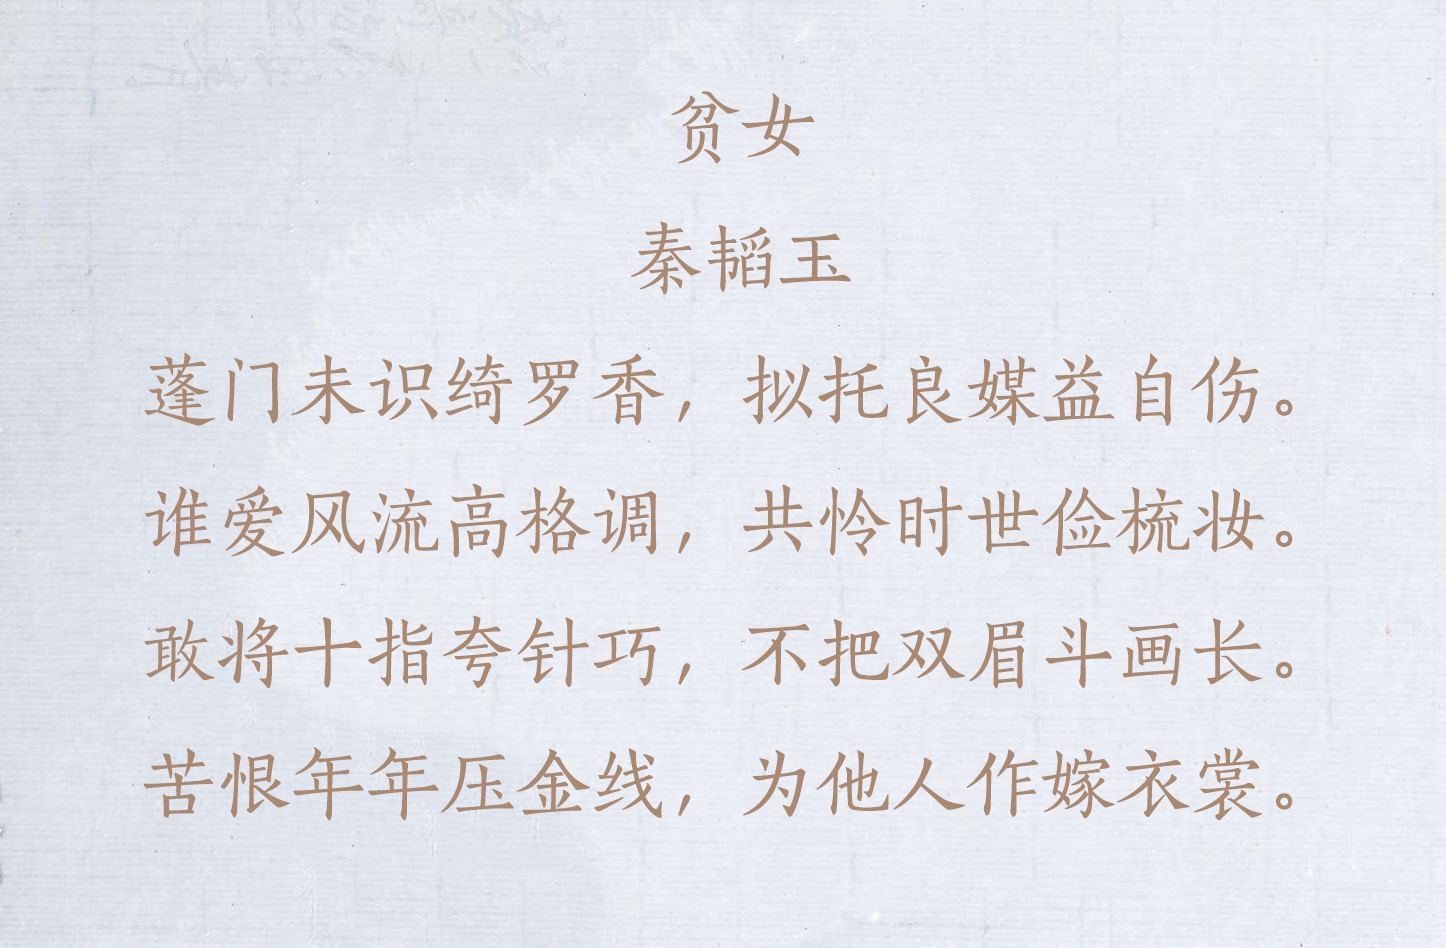 贫女
秦韬玉
蓬门未识绮罗香，拟托良媒益自伤。
谁爱风流高格调，共怜时世俭梳妆。
敢将十指夸针巧，不把双眉斗画长。
苦恨年年压金线，为他人作嫁衣裳。